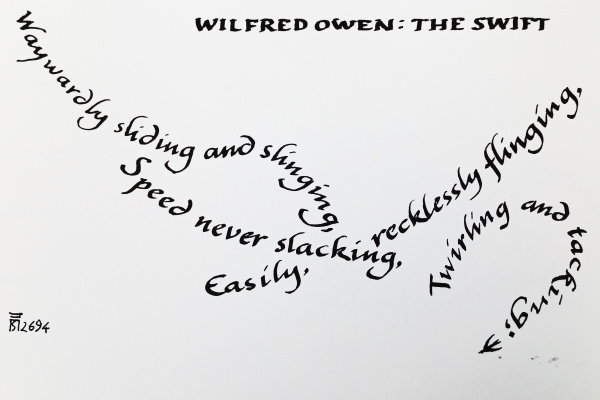 WILFRED OWEN: THE SWIFT
Waywardly sliding and slinging,
Speed never slacking,
Easily, recklessly flinging,
Twirling and tacking;